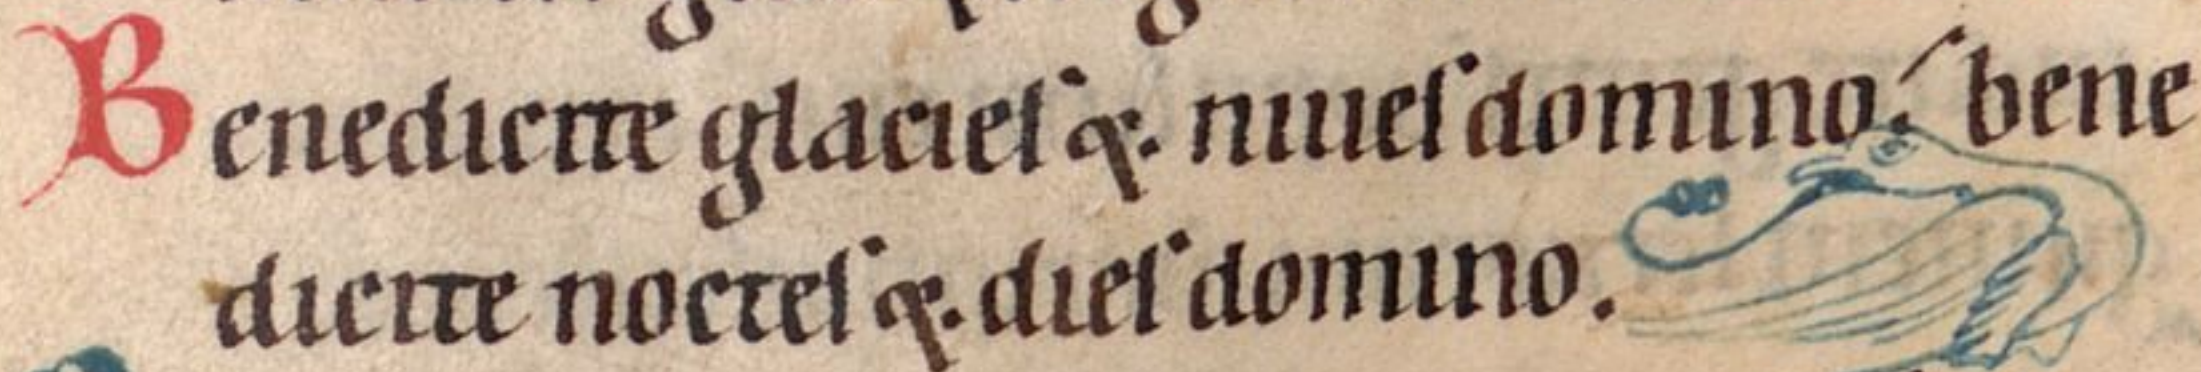 Benedicite glacieſ q. niueſ domino: bene
dicite nocteſ q. dieſ domino.